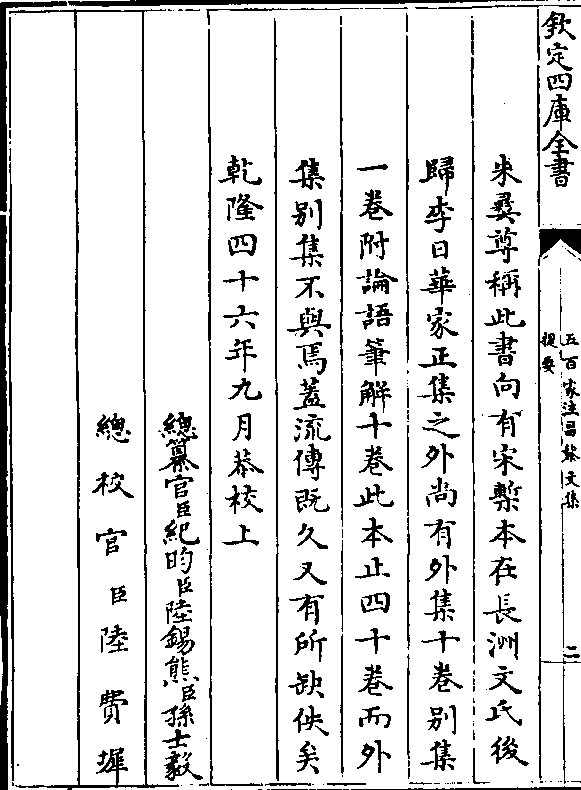 欽定四庫全書
五百家注昌黎文集
提要
二
朱彛尊稱此書向有宋槧本在長洲文氏後
歸李日華家正集之外尚有外集十卷别集
一卷附論語筆解十卷此本止四十卷而外
集别集不與焉蓋流傳既久又有所缺佚矣
乾隆四十六年九月恭校上
總纂官臣紀昀臣陸錫熊臣孫士毅
總校官臣陸費墀